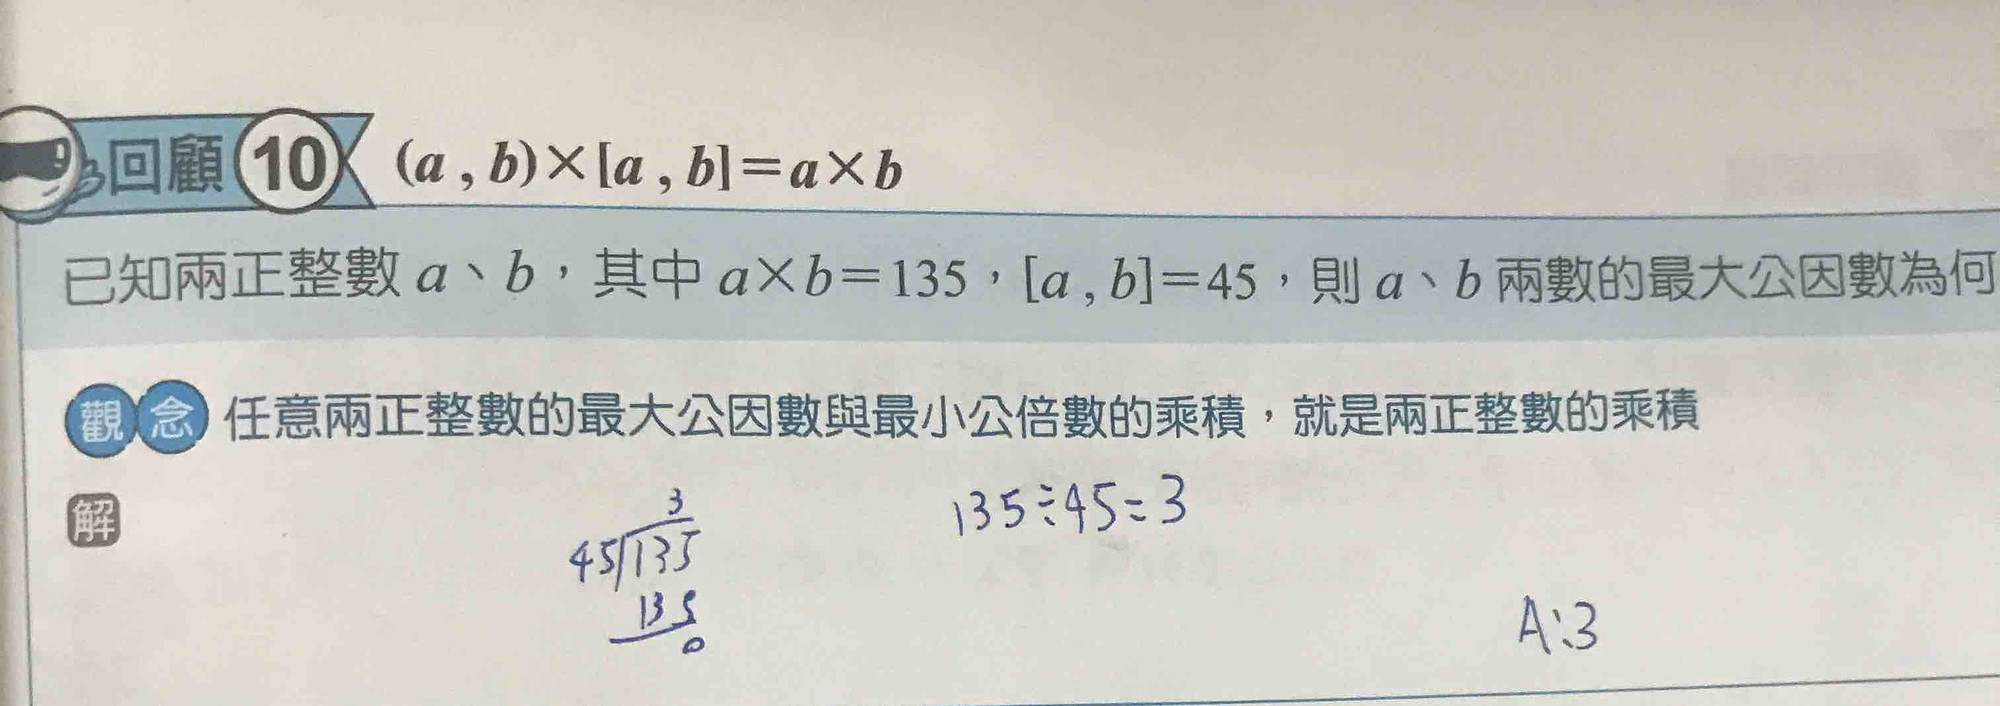 回顧 10 (a , b)×[a , b]=a×b
已知兩正整數 a、b，其中 a×b=135，[a , b]=45，則 a、b 兩數的最大公因數為何
觀念 任意兩正整數的最大公因數與最小公倍數的乘積，就是兩正整數的乘積
解
3
45)135
135
0
135÷45=3
A:3